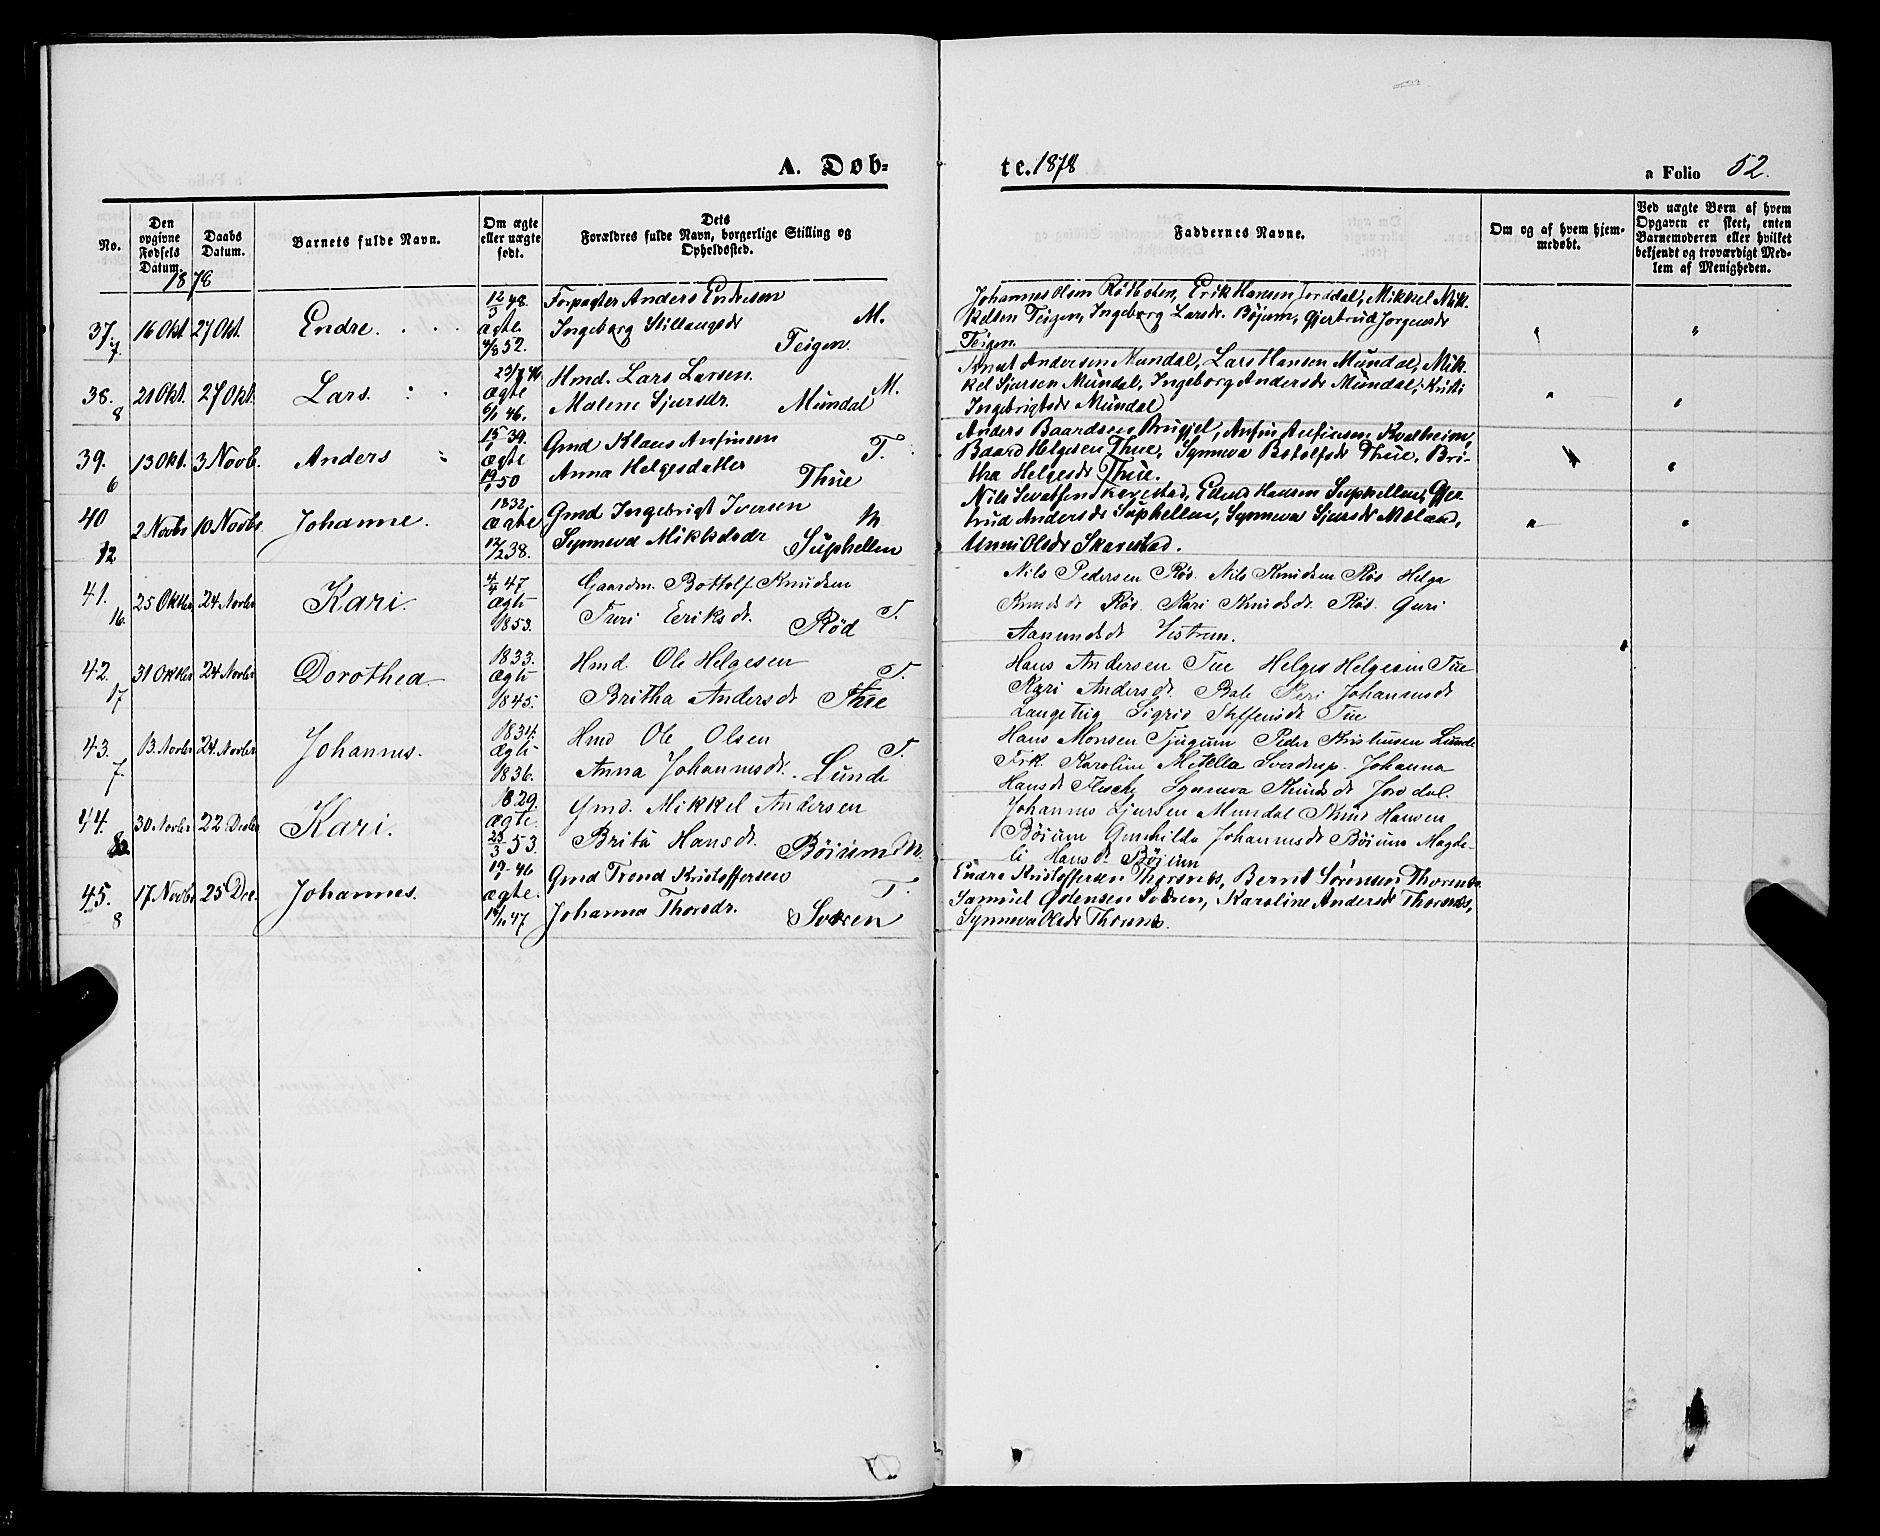 A. Døb-
te. 1878
a Folio 52.
No.
Den opgivne Fødsels Datum.
Daabs Datum.
Barnets fulde Navn.
Om ægte eller uægte født.
Dets Forældres fulde Navn, borgerlige Stilling og Opholdssted.
Faddernes Navne.
Om og af hvem hjemmedøbt.
Ved uægte Børn af hvem Opgaven er skeet, enten Barnemoderen eller hvilket bekjendt og troværdigt Medlem af Menigheden.
1878
37. 7. 16 Okt. 27 Okt. Endre.
12/3 48. ægte 4/8 52.
Forpagter Anders Endresen
Ingeborg Stillaugsdr M.
Teigen.
Johannes Olsen Rødbolen, Erik Hansen Jorddal, Mikkel Mik-
kelsen Teigen, Ingeborg Larsdr. Böjum, Gjertrud Jørgensdr
Teigen.
38. 8 21 Okt. 27 Okt. Lars.
ægte 6/1 46.
Hmd. Lars Larsen.
Malene Sjursdr. Mundal M.
Andersen Mundal, Lars Hansen Mundal, Mik-
kel Sjursen Mundal, Ingeborg Andersdr Mundal, Kristi
Ingebrigtsdr Mundal
39. 6 13 Okt. 3 Novb. Anders
15/1 39. ægte 19/1 50
Gmd Klaus Anfinsen T.
Anna Helgesdatter Thue
Anders Baardsen, Anfin Anfinsen, Kvalheim,
Baard Helgesen Thue, Synneva Botolfsdr Thue, Bri-
tha Helgesdr Thue.
40 12 2 Novbr 10 Novbr Johanne.
1832. ægte 12/2 38.
Gmd Ingebrigt Iversen M
Synneva Mikkelsdr Suphellen
Nils Skarestad, Hansen Suphellen, Gjer-
trud Andersdr Suphellen, Synneva Sjursdr Meland,
Unni Olsdr Skarestad.
41. 16. 25 Oktbr 24 Novbr Kari.
4/4 47 ægte 1853.
Gaardm. Bottolf Knudsen
Turi Eeriksd. Röd T.
Nils Pedersen Røs. Nils Knudsen Røs Helga
Knudsdt Røs. Kari Knudsdt. Røs. Guri
Aamundsdt Vestrum.
42. 17 31 Oktbr 24 Novbr Dorothea
1833. ægte 1845.
Hmd. Ole Helgesen T.
Britha Andersdt Thue
Hans Andersen Tue Helges Helgesen Tue
Kari Andersdt. Bale Johannesdt
Langeteig Sigrid Steffensdt Tue
43. 7. 13 Novbr 24 Novbr Johannes.
1834. ægte 1836.
Hmd Ole Olsen T.
Anna Johannesdt. Lunde
Hans Monsen Tjugum Peder Kristensen Lunde
Frk. Karoline Metella Sverdrup. Johanna
Hansdt Flesche Synneva Knudsdt Jorddal.
44. 30 Novbr 22 Decbr Kari.
1829. ægte. 23/3 53.
Gmd. Mikkel Andersen
Brita Hansdt. Böium M.
Johannes Sjursen Mundal Knud Hansen
Böium Gunhilda Johannesdt Böium Magde-
li Hansdt Böium
45. 8 17 Novbr 25 Dec. Johannes.
46 ægte. 47
Gmd Trond Kristoffersen T.
Johanna Thorsdr. Sværen
Endre Kristoffersen Thorsnes, Bernt Sørensen Thorsnes
Samuel Gotensen Sværen, Karoline Andersdr Thorsnes,
Synneva Olsdr Thorsnes.